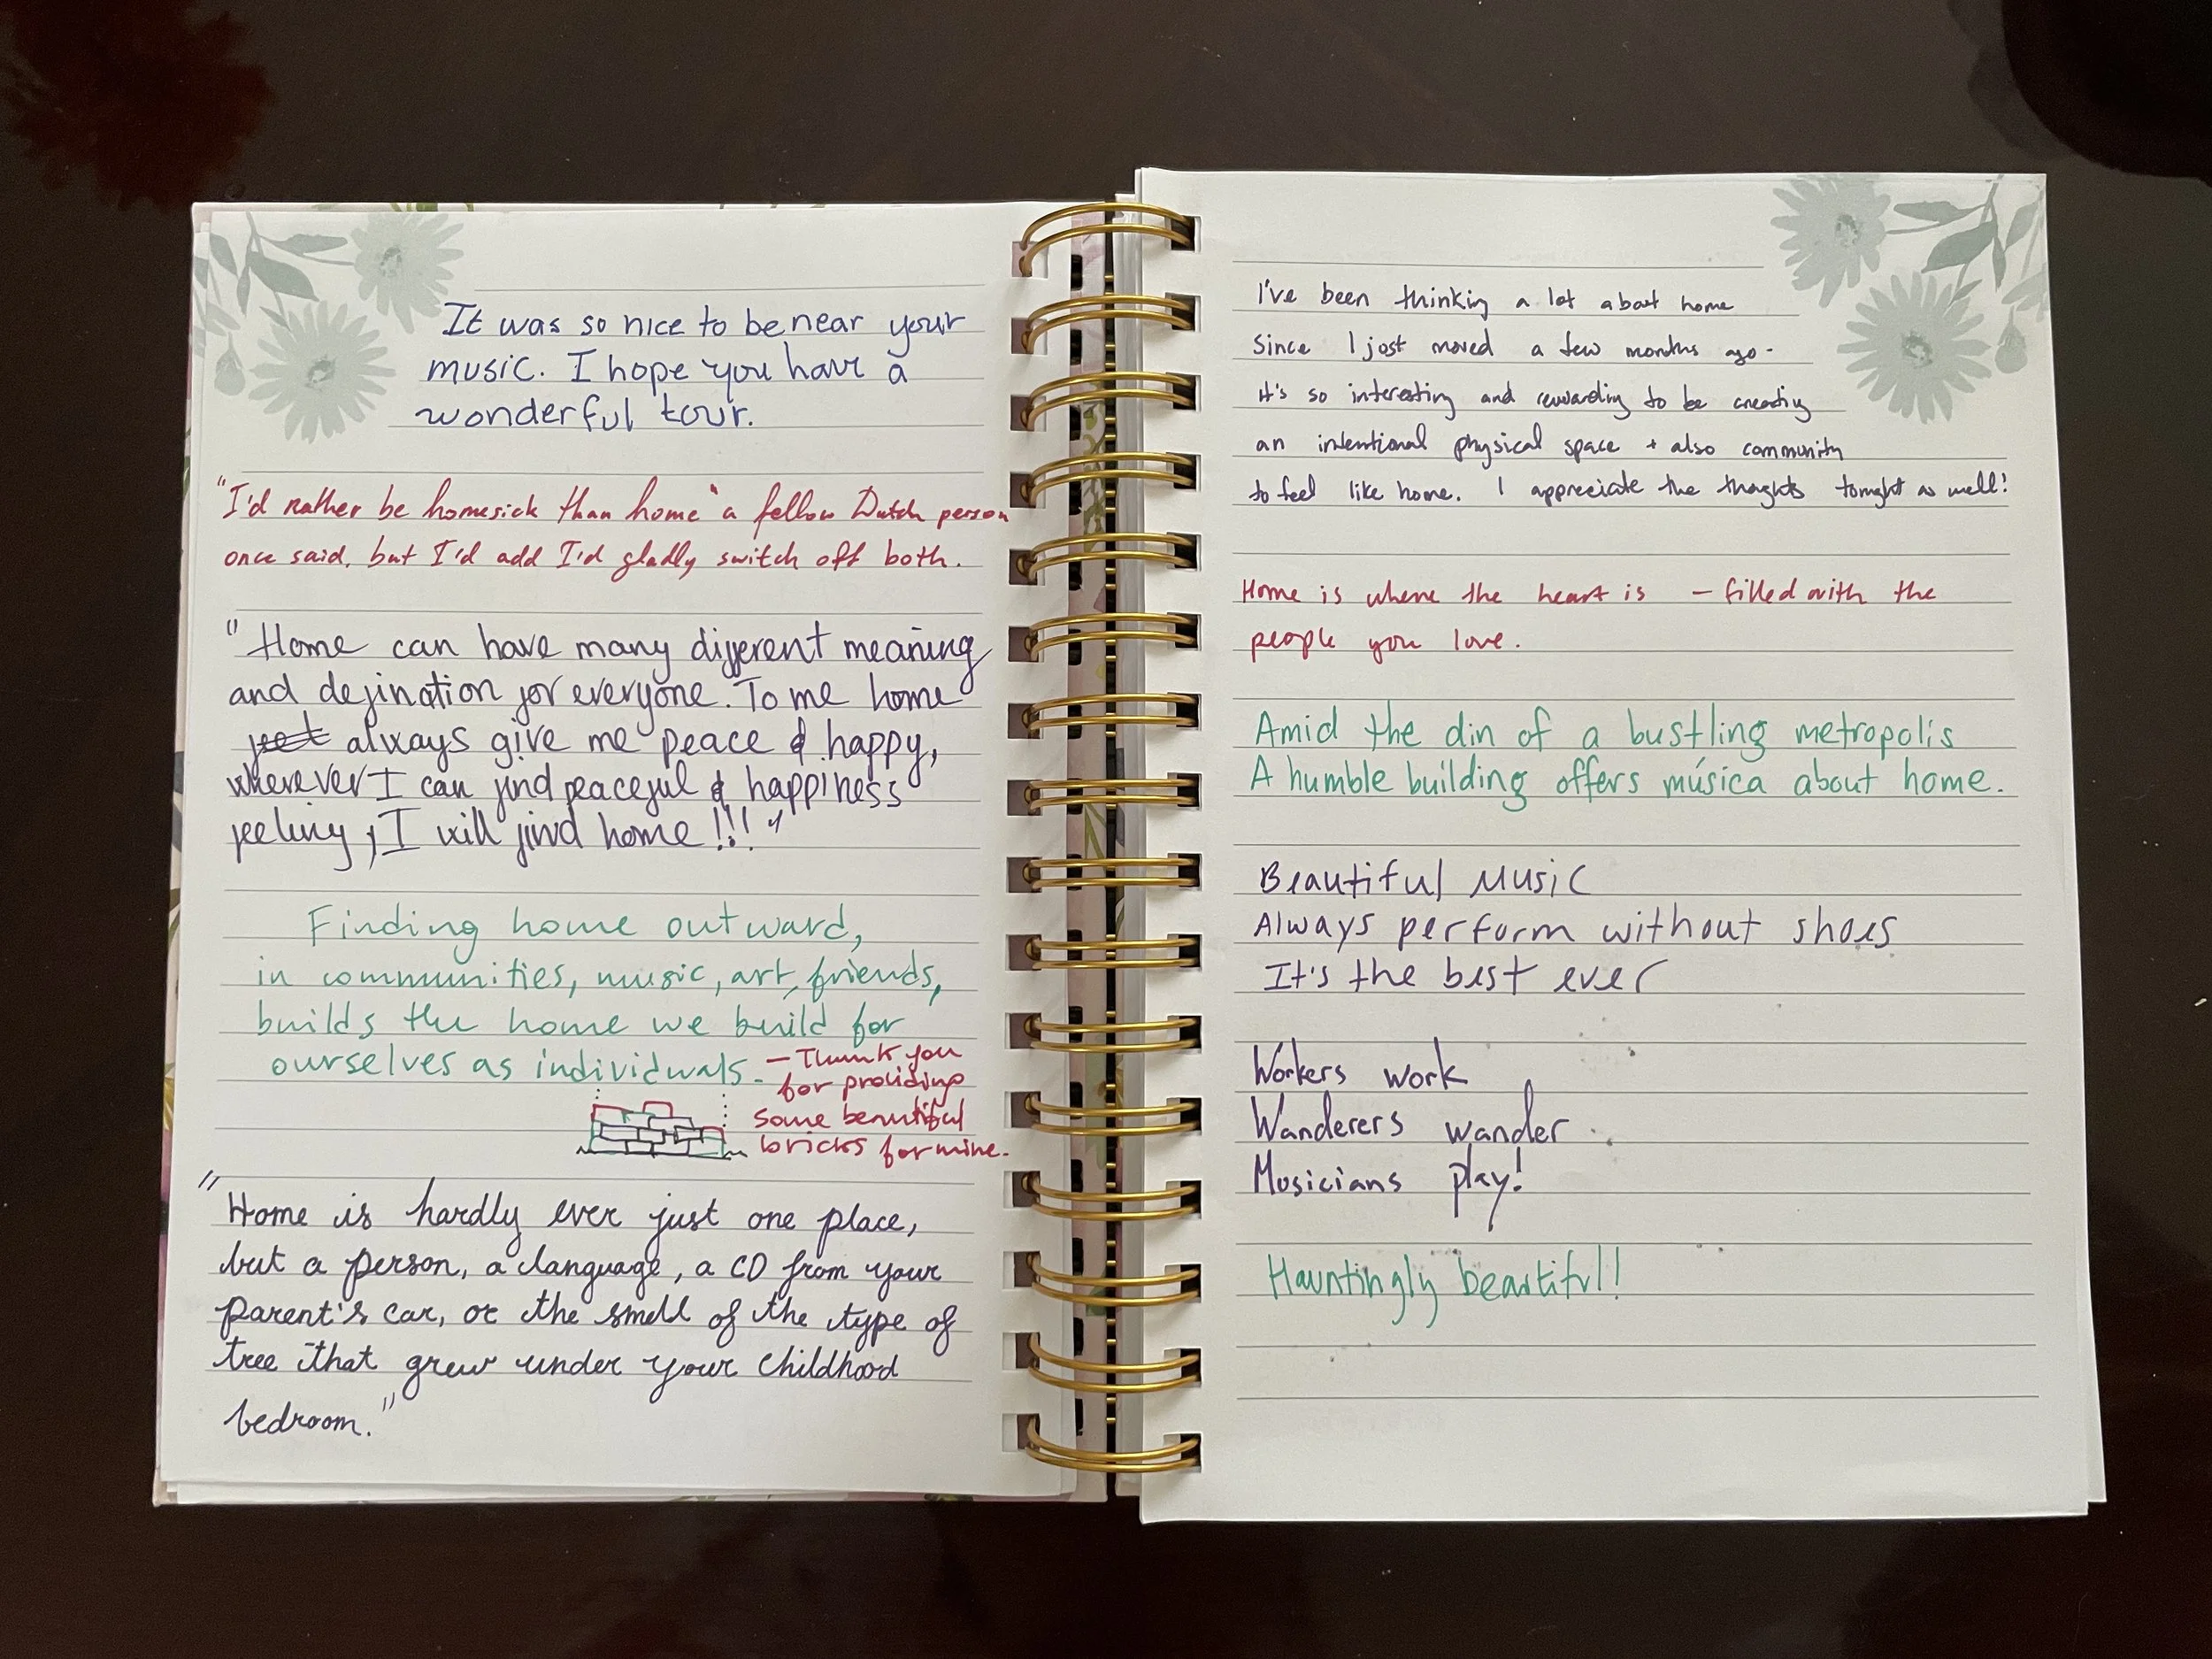 It was so nice to be near your
music. I hope you have a
wonderful tour.
"I'd rather be homesick than home" a fellow Dutch person
once said, but I'd add I'd gladly switch off both.
"Home can have many different meaning
and defination for everyone. To me home
always give me peace & happy,
wherever I can find peaceful & happiness
feeling, I will find home!!!"
Finding home outward,
in communities, music, art, friends,
builds the home we build for
ourselves as individuals.
– Thank you
for providing
some beautiful
bricks for mine.
"Home is hardly ever just one place,
but a person, a language, a CD from your
parent's car, or the smell of the type of
tree that grew under your childhood
bedroom."
I've been thinking a lot about home
Since I just moved a few months ago -
it's so interesting and rewarding to be creating
an intentional physical space + also community
to feel like home. I appreciate the thoghts tonight as well!
Home is where the heart is – filled with the
people you love.
Amid the din of a bustling metropolis
A humble building offers música about home.
Beautiful Music
Always perform without shoes
It's the best ever
Workers work
Wanderers wander
Musicians play!
Hauntingly beautiful!